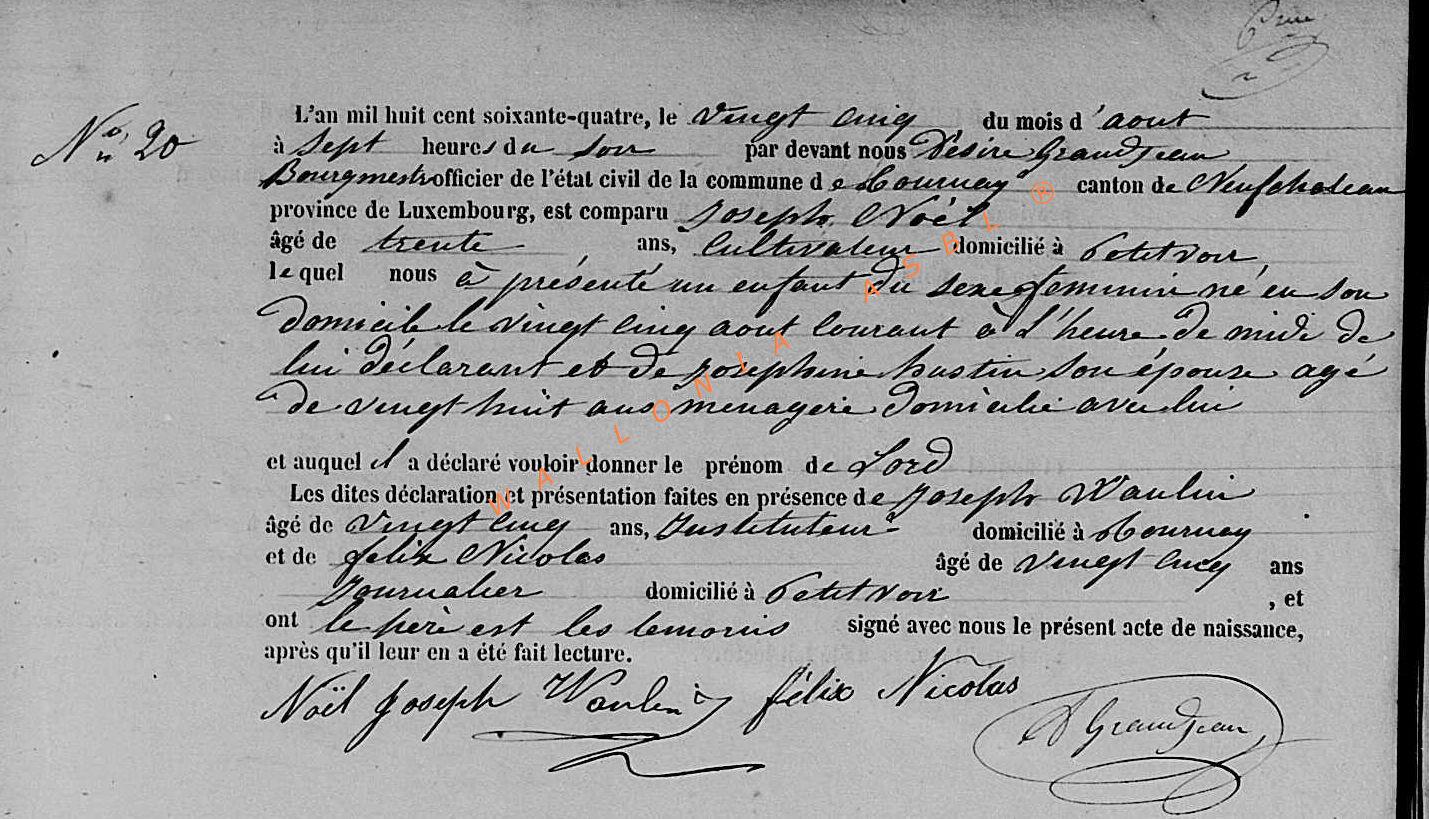 N° 20
L'an mil huit cent soixante-quatre, le vingt cinq du mois d'aout
à sept heures du soir par devant nous Désiré Grandjean
Bourgmestre officier de l'état civil de la commune de Tournay canton de Neufchateau
province de Luxembourg, est comparu Joseph Noël
âgé de trente ans, Cultivateur domicilié à Petitvoir,
lequel nous à présenté un enfant du sexe feminin né en son
domicile le vingt cinq aout courant à l'heure de midi de
lui déclarant et de Josephine hustin son épouse agé
de vingt huit ans menagere domicilié avec lui
et auquel il a déclaré vouloir donner le prénom de
Les dites déclaration et présentation faites en présence de Joseph Waulin
âgé de vingt cinq ans, Instituteur domicilié à Tournay
et de felix Nicolas âgé de vingt cinq ans
Journalier domicilié à Petitvoir, et
ont le père est les temoins signé avec nous le présent acte de naissance,
après qu'il leur en a été fait lecture.
Noël Joseph Waulin J félix Nicolas
D Grandjean
WALLONIA ASBL ®